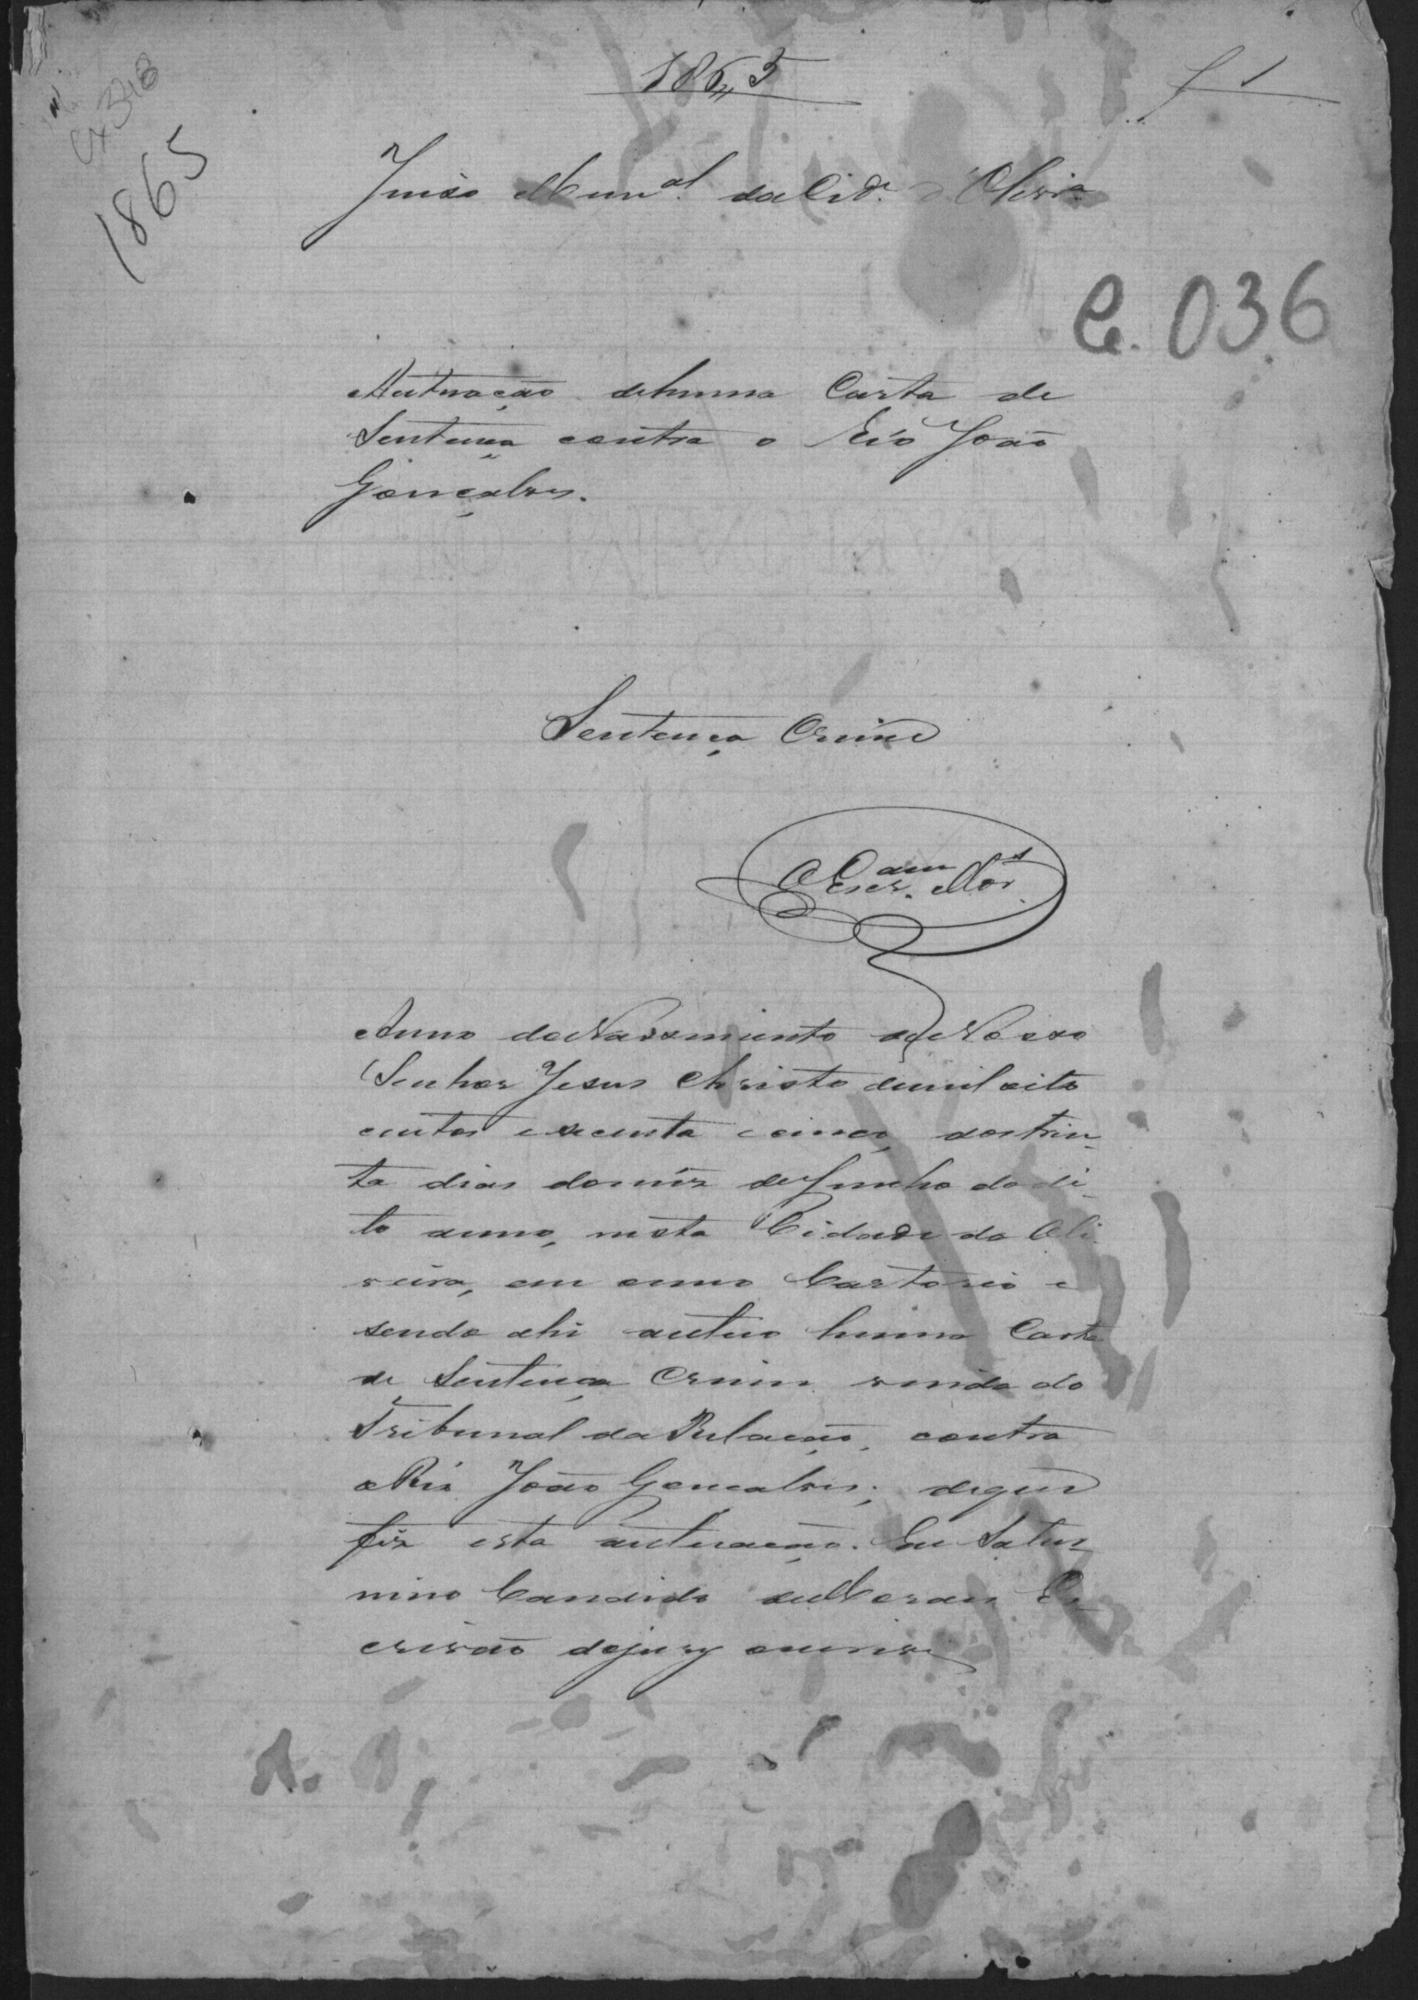 1865
f 1
Cx 348
1865
Juizo Mun.al da Cid.e d'Olivr.a
C. 036
Autuação dehuma Carta de
Sentença contra o Réo João
Gonçalves.
Sentença Crime
O Escr.am Mor.s
Anno do Nascimento de Nosso
Senhor Jesus Christo de mil oito
centos e secenta e cinco, aos trin
ta dias do mês de Junho do di
to anno, nesta Cidade da Oli
veira, em meu Cartorio e
sendo ahi autuo huma Carta
de Sentença Crime vinda do
Tribunal da Relação, contra
o Réo João Gonçalves; de que
fiz esta autuação. Eu Satur
nino Candido de Moraes Es
crivão do jury escrivi